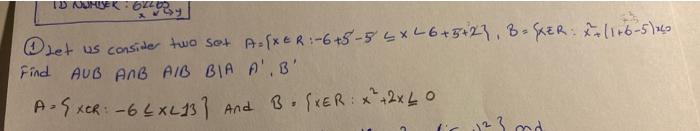 ID NUMBER : 62265
x y
① Let us consider two set A = {x ∈ R : -6+5-5 ≤ x < 6+5+2}, B = {x ∈ R : x²+(1+6-5)x≤0
Find AUB A∩B A/B B|A A', B'
A = { x∈R : -6 ≤ x < 13 } And B = {x∈R : x²+2x ≤ 0